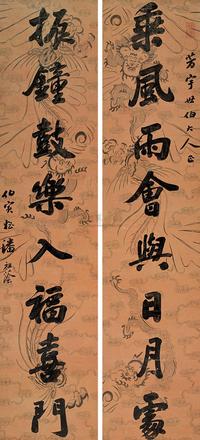 世伯大人正
乘風雨會與日月處
振鐘鼓樂入福喜門
伯寅潘祖蔭